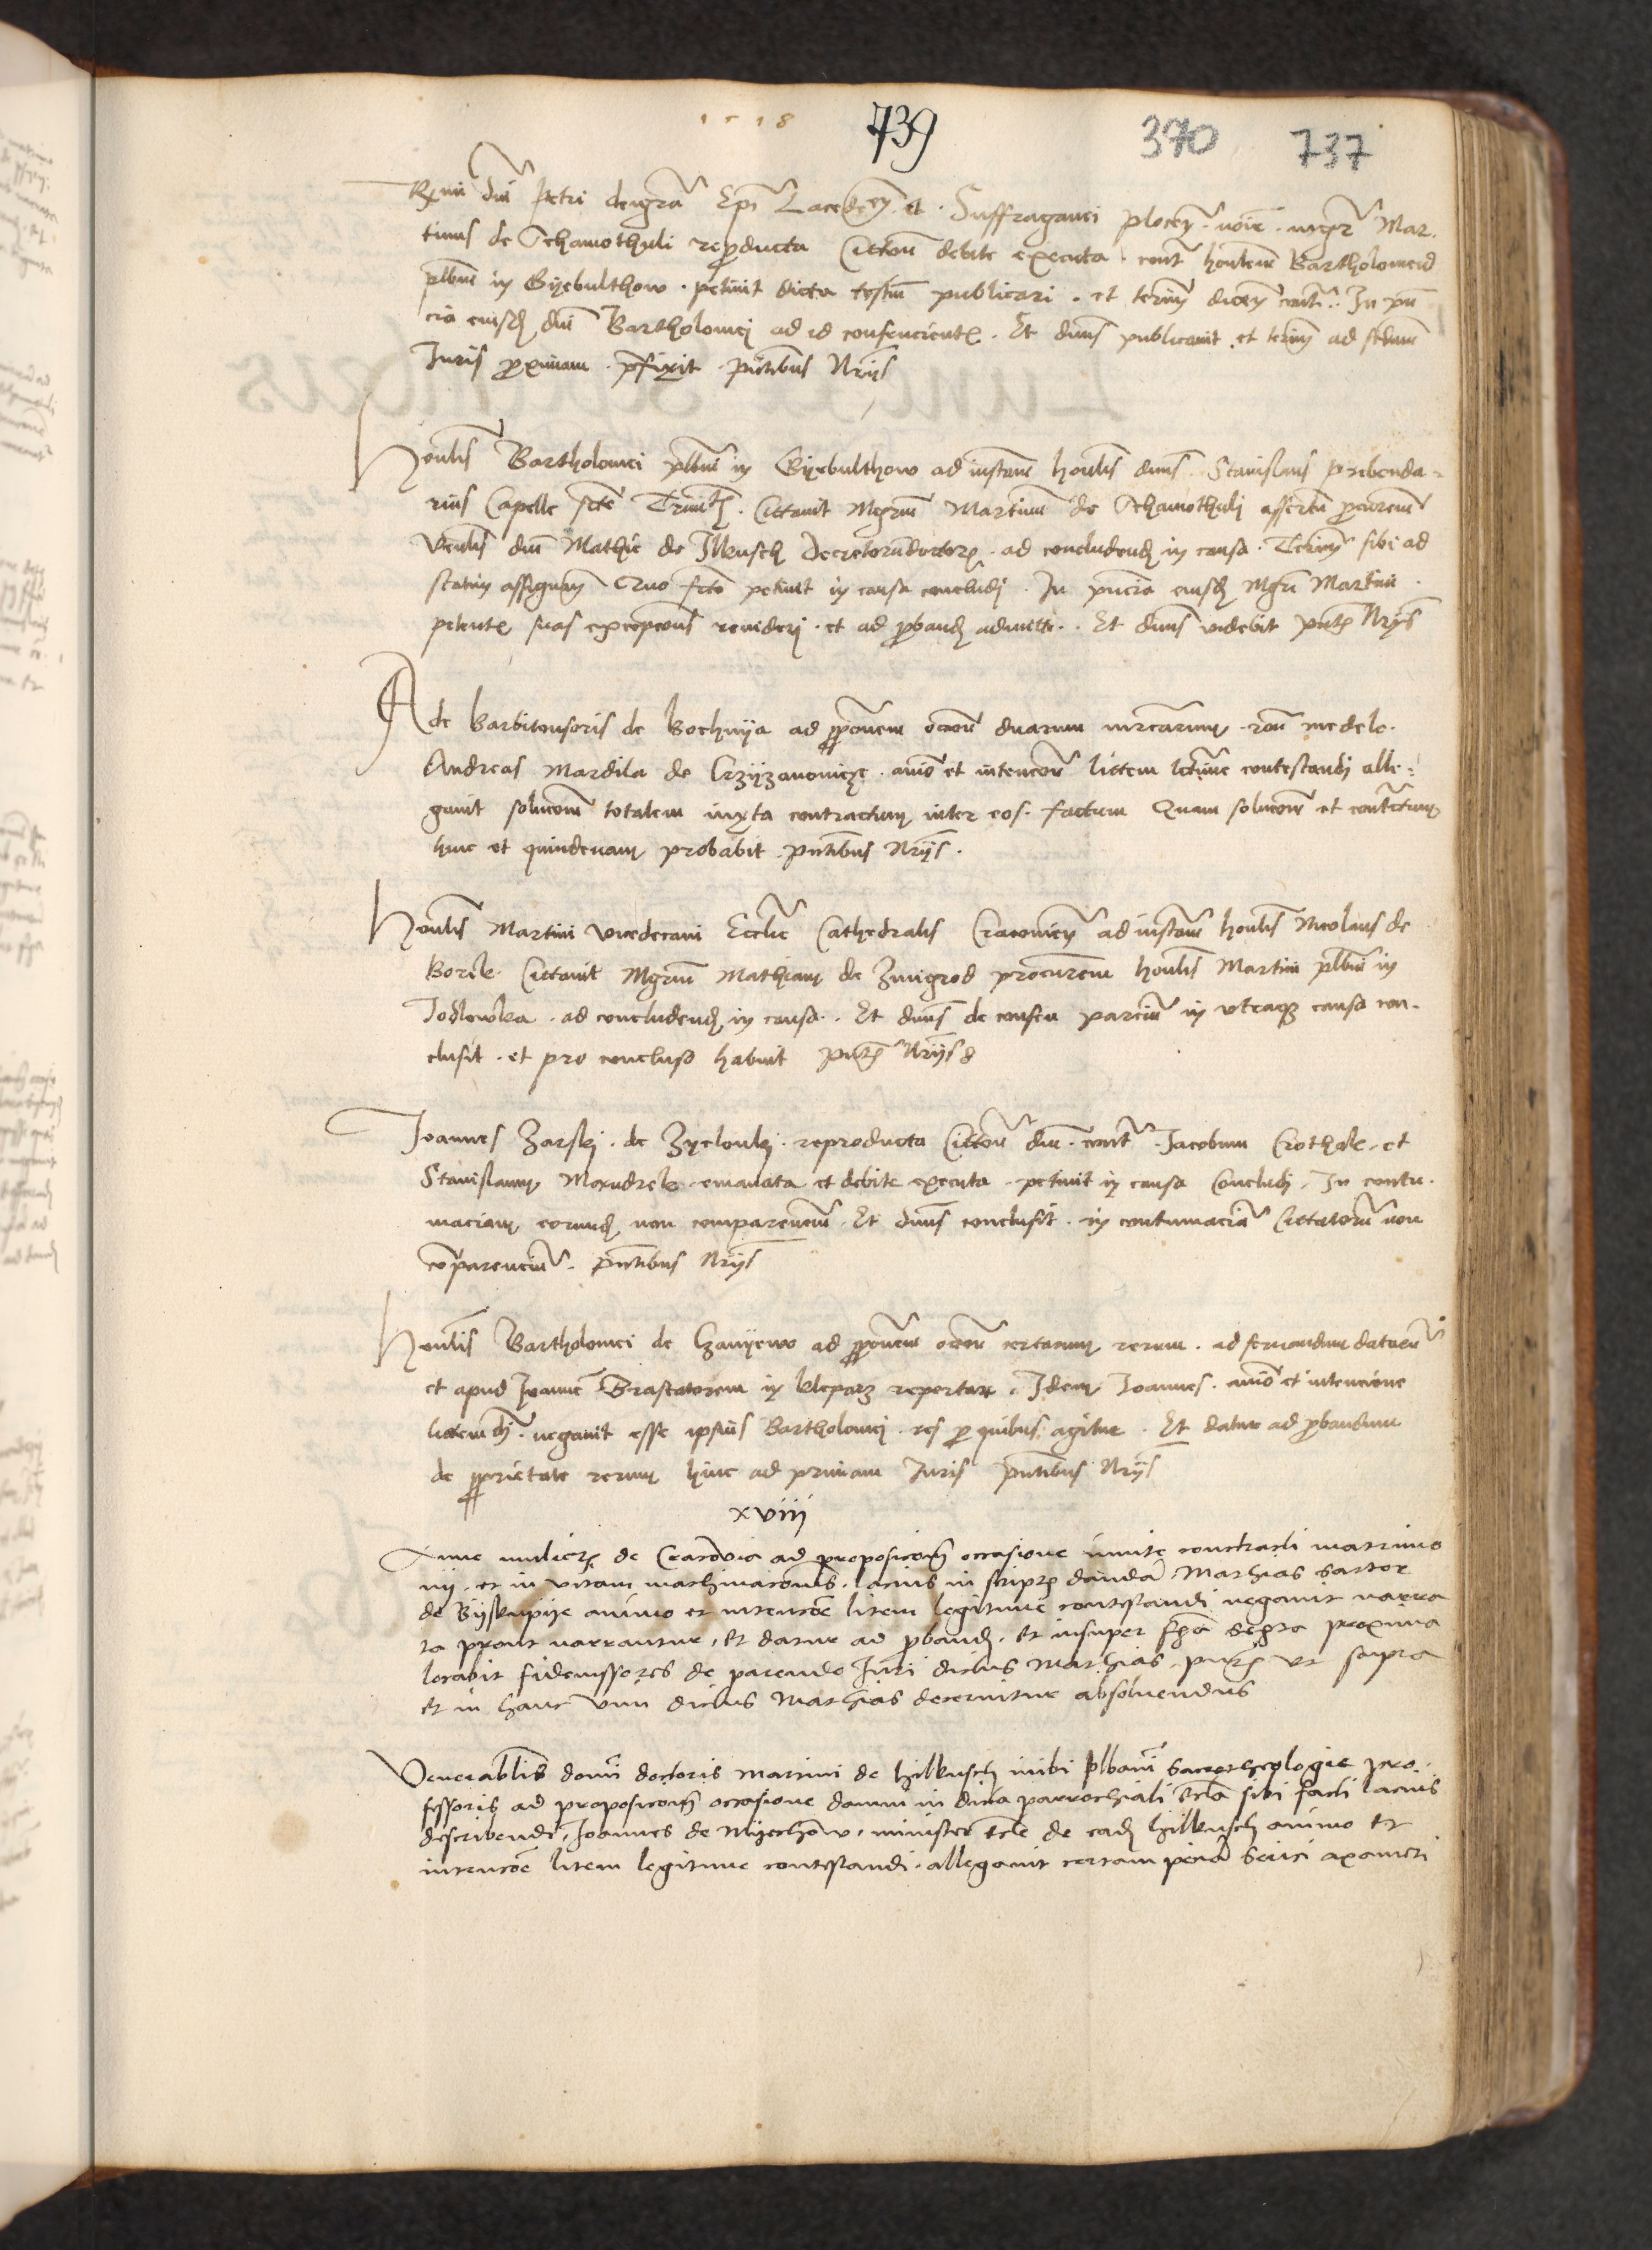 1518 739 370 737
Rmi dni Petri dei gra Epi Laceden et Suffraganei plocen noie mgr Mar
tinus de Schamothuli reproducta Cittcoe debite executa contra honlem Bartholomeum
plbnm in Gyebulthow petiuit dicta testium publicari et terim dicen contra In pn
cia eiusd dni Bartholomei ad id consencientis Et dnus publicauit et terim ad scdam
Iuris proximam prefixit pntibus Nrijs
Honlis Bartholomei plbni in Gyebulthow ad instam honlis dnus Stanislaus prebenda
rius Capelle scte Trinitis Cittauit Mgrum Martinum de Schamothuli assertum procurem
Venlis dni Mathie de Ilkusch Decretorum doctoris ad concludend in causa Terim sibi ad
statim assignan Quo fcto petiuit in causa concludi In pncia eiusd Mgri Martini
petentis suas excepcones reuideri et ad proband admitti Et dnus videbit pntis Nrijs
Ade Barbitonsoris de Bochnya ad propoem occoe duarum mrcarum roe medele
Andreas Mardila de Crzyzanowicze aio et intencoe littem lettime contestandi alle
gauit solucoem totalem iuxta contractum inter eos factum Quam solucoem et contctum
hinc et quindenam probabit pntibus Nrijs
Honlis Martini vicedecani Ecclie Cathedralis Cracouien ad instam honlis Nicolaus de
Borek Cittauit Mgrum Mathiam de Zmigrod procurem honlis Martini plbni in
Jodlowka ad concludend in causa Et dnus de consen parcium in vtraque causa con
clusit et pro concluso habuit pntis Nrijs
Joannes Zarski de Zyelonki reproducta Cittcoe dni contra Jacobum Crothole et
Stanislaum Mandrela emanata et debite executa petiuit in causa Concludi In contu
maciam eorund non comparencium Et dnus conclusit in contumaciam Cittatorum non
comparencium pntibus Nrijs
Honlis Bartholomei de Czanyewo ad propoem occoe certarum rerum ad seruandum datarum
et apud Joanne Brasiatorem in Kleparz repertar Idem Joannes aio et intencione
littem negauit esse ipsius Bartholomei res pro quibus agitur Et datur ad probandum
de proprietate rerum hinc ad primam Iuris pntibus Nrijs
xviii
Anne mulieris de Cracouia ad proposicom occasione inite contracti matrimo
nij et in vitam machinacionis lacius in scriptis danda Mathias sartor
de Byskupije animo et intencoe litem legitime contestandi negauit narra
ta prout narrantur, Et datur ad proband. Et insuper feria sexta proxima
locabit fideiussores de parendo Juri dictus Mathias pntis vt supra
Et in hanc vim dictus Mathias decernitur absoluendus
Venerablis domi doctoris Martini de hilkusch inibi plbani Sacre theologie pro
fessoris ad proposicom occasione damni in dicta parrochiali Ecla sibi facti lacius
describendi, Joannes de Myechow, minister Ecle de ead hilkusch animo Et
intencoe litem legitime contestandi allegauit certam peciam serici axamiti